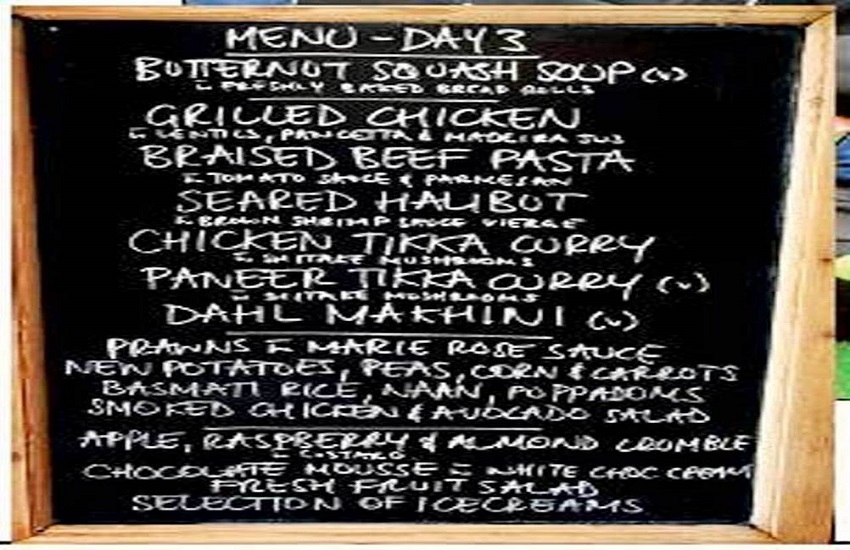 MENU - DAY 3
BUTTERNUT SQUASH SOUP (v)
& FRESHLY BAKED BREAD ROLLS
GRILLED CHICKEN
& LENTILS, PANCETTA & MADEIRA JUS
BRAISED BEEF PASTA
& TOMATO SAUCE & PARMESAN
SEARED HALIBUT
& BROWN SHRIMP SAUCE VIERGE
CHICKEN TIKKA CURRY
& SHITAKE MUSHROOMS
PANEER TIKKA CURRY (v)
& SHITAKE MUSHROOMS
DAHL MAKHINI (v)
PRAWNS & MARIE ROSE SAUCE
NEW POTATOES, PEAS, CORN & CARROTS
BASMATI RICE, NAAN, POPPADOMS
SMOKED CHICKEN & AVOCADO SALAD
APPLE, RASPBERRY & ALMOND CRUMBLE
& CUSTARD
CHOCOLATE MOUSSE & WHITE CHOC CREAM
FRESH FRUIT SALAD
SELECTION OF ICECREAMS